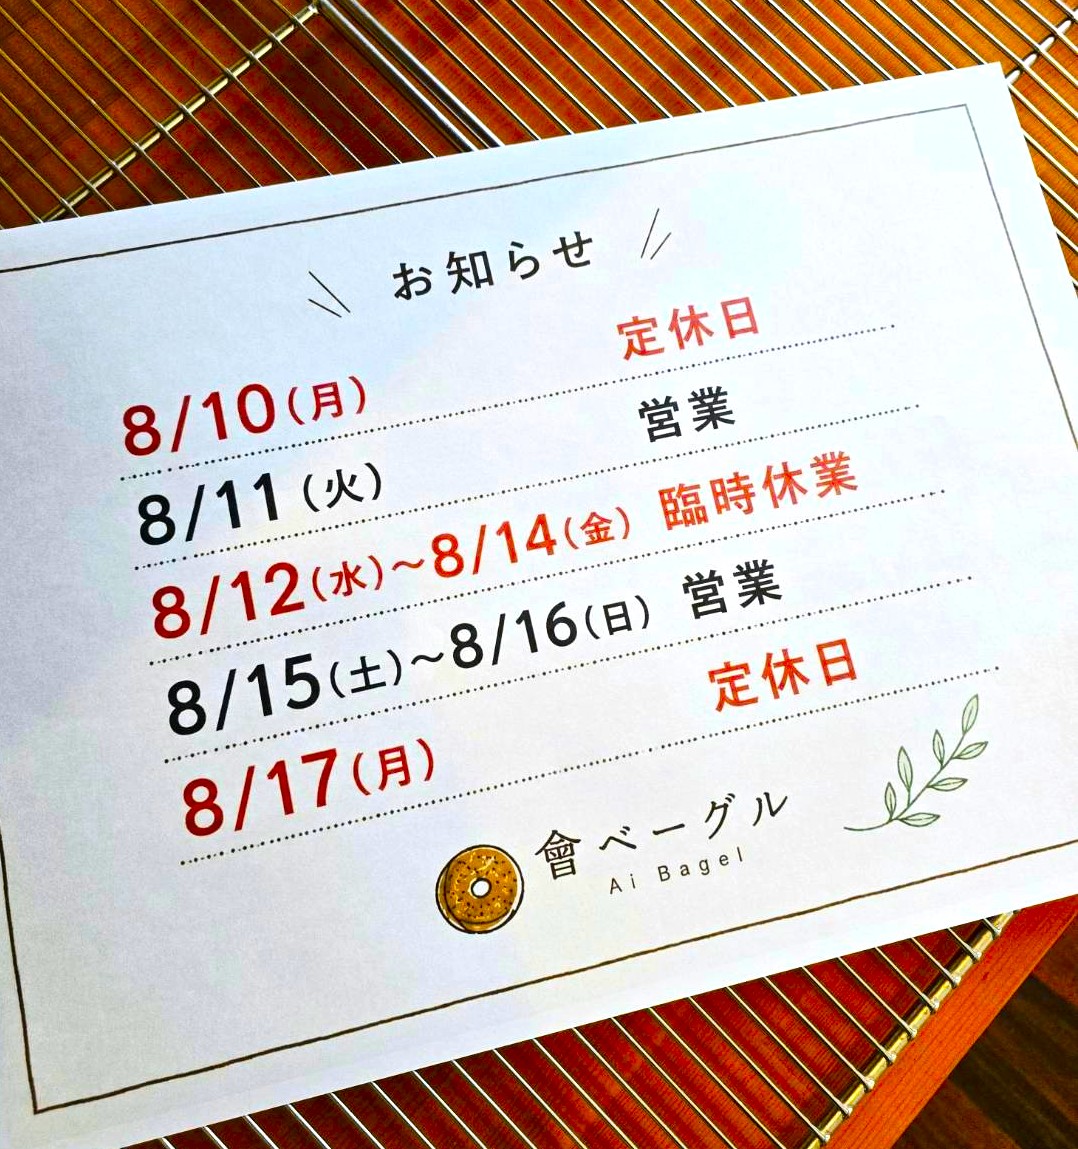 お知らせ
8/10(月) 定休日
8/11(火) 営業
8/12(水)〜8/14(金) 臨時休業
8/15(土)〜8/16(日) 営業
8/17(月) 定休日
會ベーグル
Ai Bagel